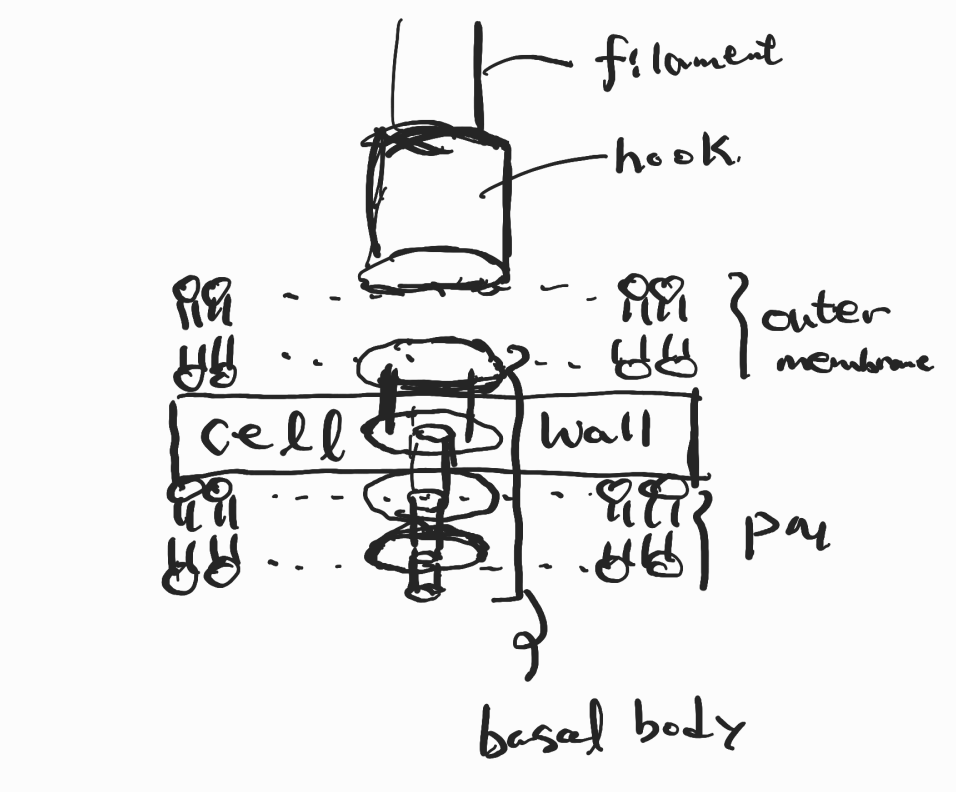 filament
hook.
outer
membrane
cell wall
basal body